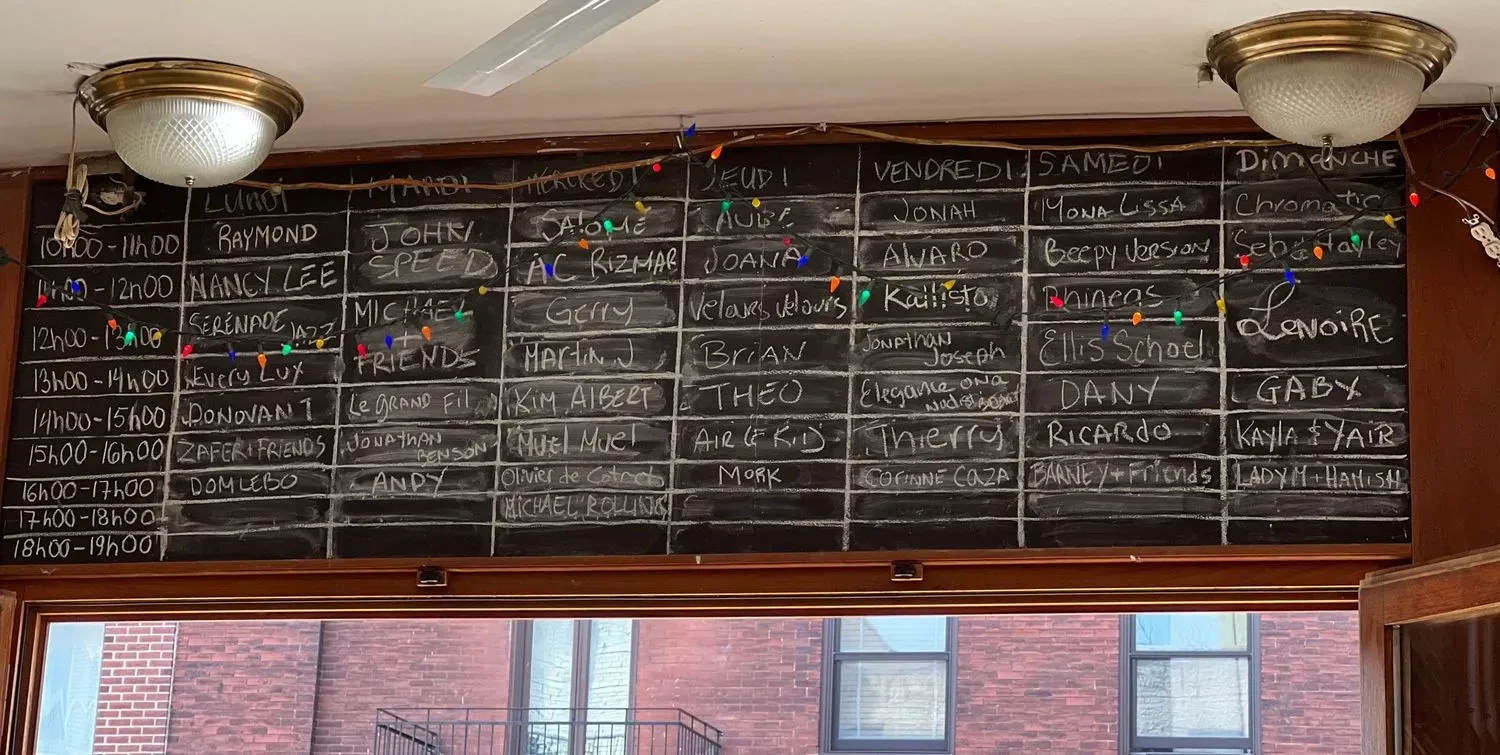 LUNDI MARDI MERCREDI JEUDI VENDREDI SAMEDI DIMANCHE
10h00-11h00 RAYMOND JOHN SPEED SALOMÉ AUBE JONAH MONA LISSA Chromatic
11h00-12h00 NANCY LEE AC RIZMAR JOANA ALVARO Beepy VERSION Seb
12h00-13h00 SÉRÉNADE JAZZ MICHAEL + FRIENDS Gerry Velours velours Kallisto Phineas LENOIRE
13h00-14h00 Every Lux MARTIN.J BRIAN JONATHAN Joseph Ellis School
14h00-15h00 DONOVAN T Le GRAND Fil KIM ALBERT THÉO Elegance on a DANY GABY
15h00-16h00 ZAFER+FRIENDS JONATHAN BENSON Muel Muel AIR Thierry RICARDO KAYLA & YAIR
16h00-17h00 DOMLEBO ANDY Olivier de MORK CORINNE CAZA BARNEY+Friends LADY M+HAMISH
17h00-18h00 MICHAEL ROLLING
18h00-19h00